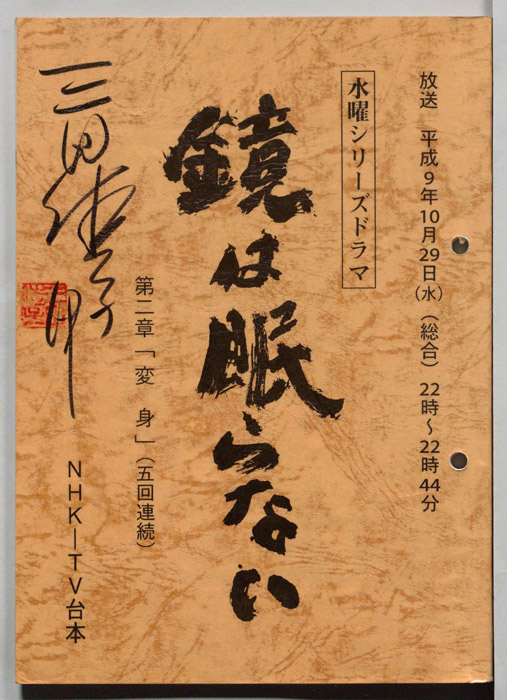 放送　平成9年10月29日（水）（総合）22時～22時44分
水曜シリーズドラマ
鏡は眠らない
第二章「変　身」（五回連続）
NHK―TV台本
三田佳子